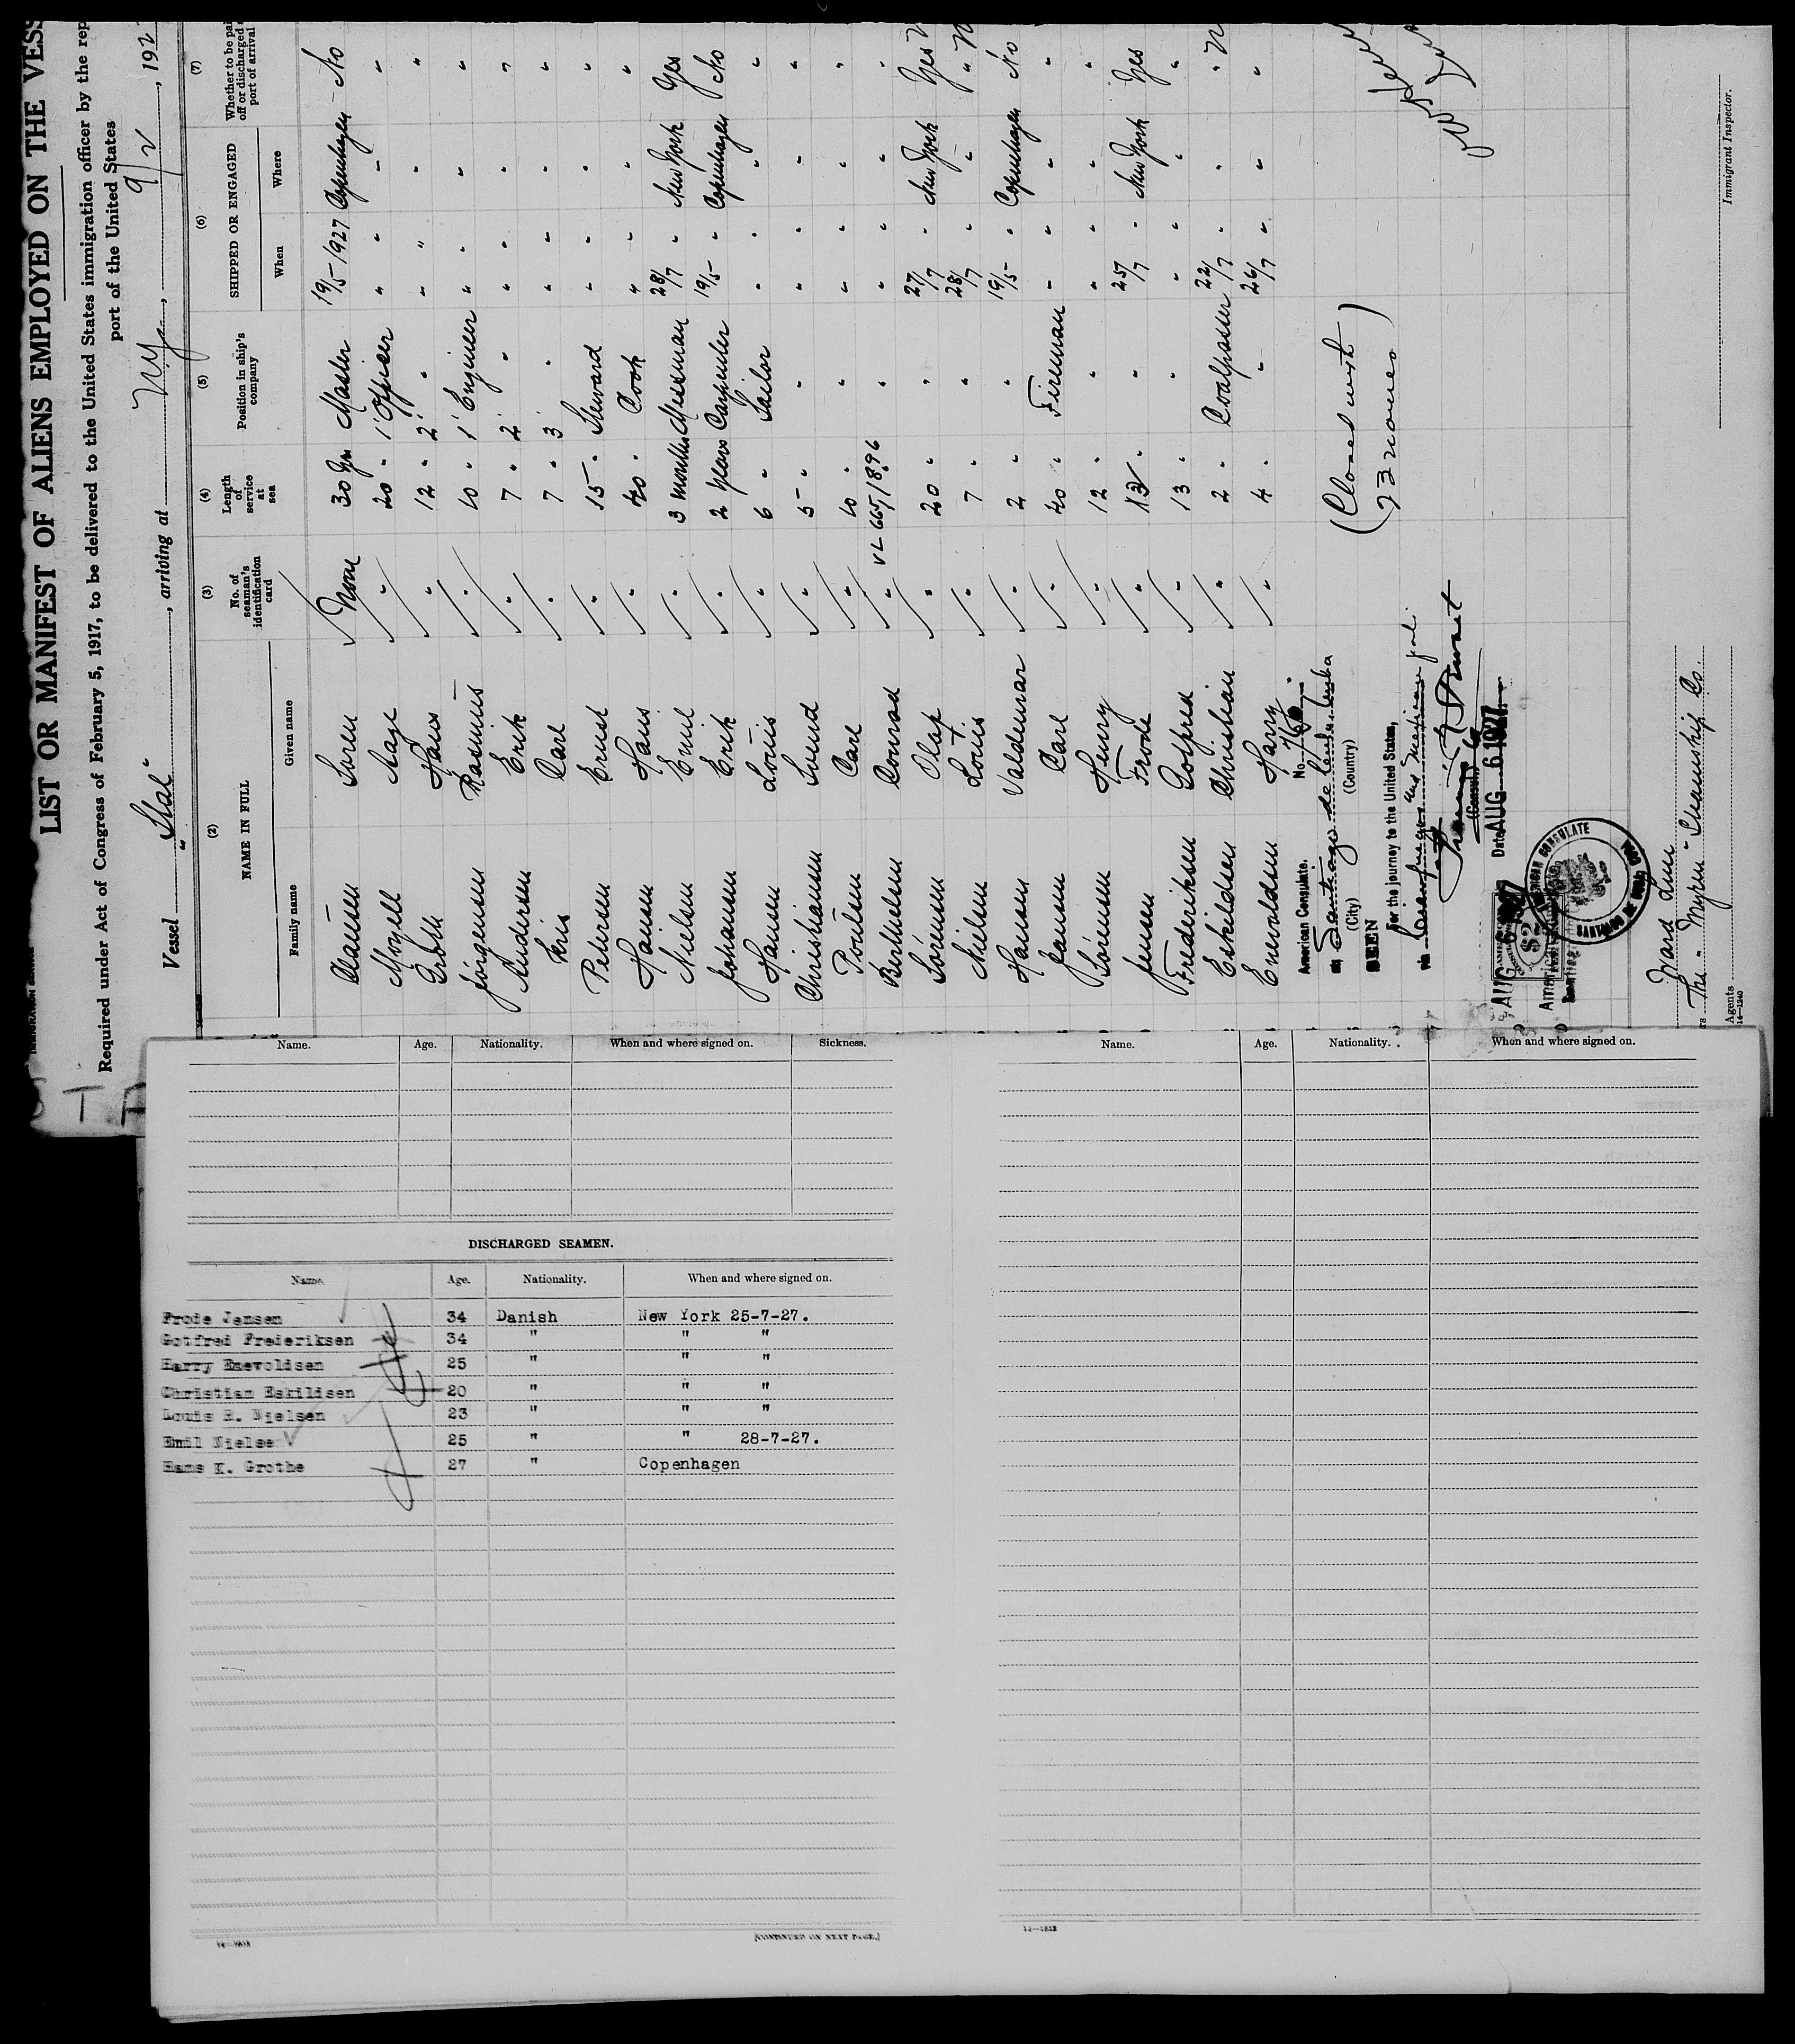 LIST OR MANIFEST OF ALIENS EMPLOYED ON THE VESS
Required under Act of Congress of February 5, 1917, to be delivered to the United States immigration officer by the rep
port of the United States
Vessel "Stal", arriving at NY, 9/2, 192
(2) (3) (4) (5) (6) (7)
NAME IN FULL No. of seaman's identification card Length of service at sea Position in ship's company SHIPPED OR ENGAGED Whether to be pai off or discharged port of arrival
Family name Given name When Where
Clausen Soren None 30 Yrs Master 19/5 1927 Copenhagen No
Aage " 20 " 1' Officer " " " "
Groth Hans " 12 " 2' " " " " "
Jörgensen Rasmus " 10 " 1' Engineer " " " "
Andersen Erik " 7 " 2' " " " " "
Friis Carl " 7 " 3' " " " " "
Petersen Ernst " 15 " Steward " " " "
Hansen Hans " 40 " Cook " " " "
Nielsen Emil " 3 months Messman 28/7 " New York Yes
Johansen Erik " 2 years Carpenter 19/5 " Copenhagen No
Hansen Louis " 6 " Sailor " " " "
Christiansen Svend " 5 " " " " " "
Poulsen Carl " 10 " " " " " "
Berthelsen Conrad " VL 665/1896 " " " " "
Sörensen Olaf " 20 " " 27/7 " New York Yes
Nielsen Louis " 7 " " 28/7 " " "
Hansen Valdemar " 2 " " 19/5 " Copenhagen No
Jensen Carl " 40 " Fireman " " " "
Sörensen Henry " 12 " " " " " "
Jensen Frode " 13 " " 25/7 " New York Yes
Frederiksen Gotfred " 13 " " " " " "
Eskildsen Christian " 2 " Coalpasser 22/7 " " "
Enevoldsen Harry " 4 " " 26/7 " " "
American Consulate. No.
at Santiago de Cuba, Cuba
(City) (Country)
(Closed with
23 names)
SEEN
For the journey to the United States,
via
(Consul)
Date AUG 6 1927
AMERICAN CONSULATE
SANTIAGO DE CUBA, CUBA
$2
Ward Line
The "Myren" Steamship Co.
Agents
14—1240
Immigrant Inspector.
Name. Age. Nationality. When and where signed on. Sickness.
DISCHARGED SEAMEN.
Name. Age. Nationality. When and where signed on.
Frode Jensen 34 Danish New York 25-7-27.
Gotfred Frederiksen 34 " " "
Harry Enevoldsen 25 " " "
Christian Eskildsen 20 " " "
Louis R. Nielsen 23 " " "
Emil Nielse 25 " " 28-7-27.
Hans K. Grothe 27 " Copenhagen
[CONTINUED ON NEXT PAGE.]
Name. Age. Nationality. When and where signed on.